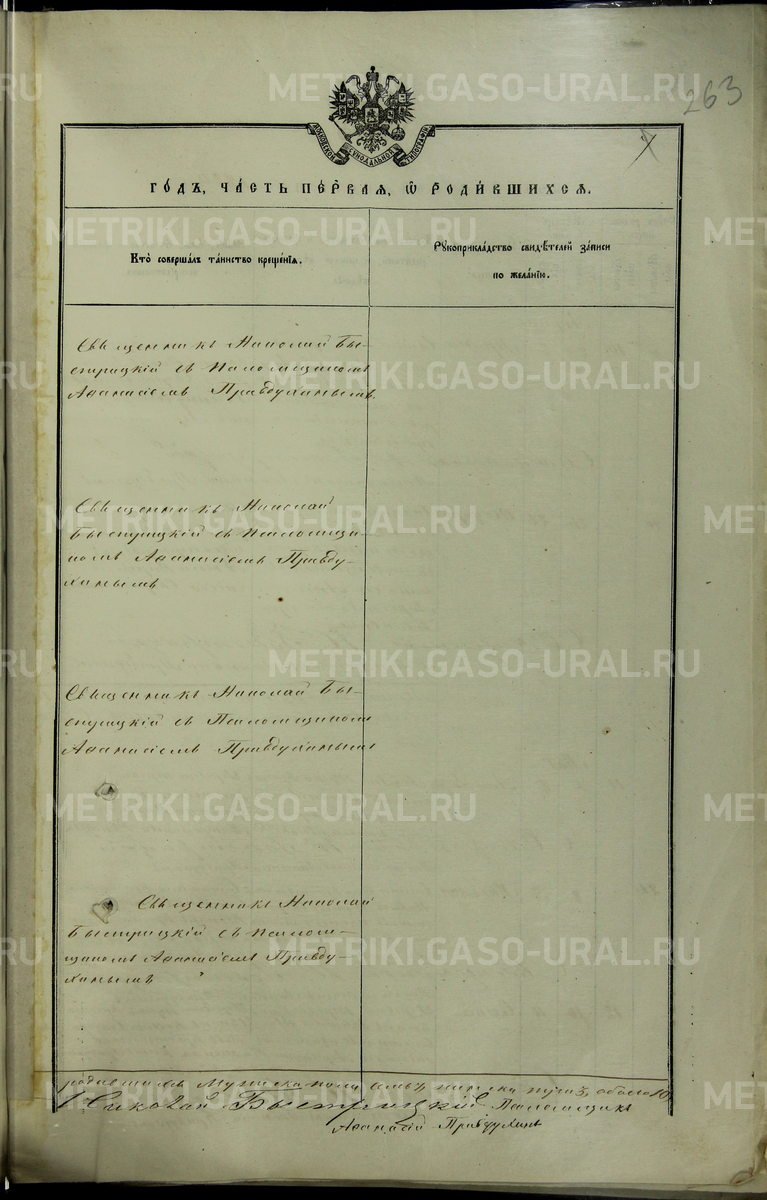 263
МОСКОВСКОЙ СУНОДАЛЬНОЙ ТИПОГРАФІИ
METRIKI.GASO-URAL.RU
го́дъ, ча́сть пе́рваѧ, ѡ роди́вшихсѧ.
Кто̀ соверша́лъ та́инство креще́нїѧ.
Рꙋкоприкла́дство свидѣ́телей за́писи
по жела́нїю.
Священникъ Николай Бы-
стрицкій съ Псаломщикомъ
Афанасіемъ Правдухинымъ.
Священникъ Николай
Быстрицкій съ Псаломщи-
комъ Афанасіемъ Правду-
хинымъ
Священникъ Николай Бы-
стрицкій съ Псаломщикомъ
Афанасіемъ Правдухинымъ
Священникъ Николай
Быстрицкій съ Псалом-
щикомъ Афанасіемъ Правду-
хинымъ
родившихся мужеска пола семь, женска три, обоего 10
Николай Быстрицкій Псаломщикъ
Афанасій Правдухинъ